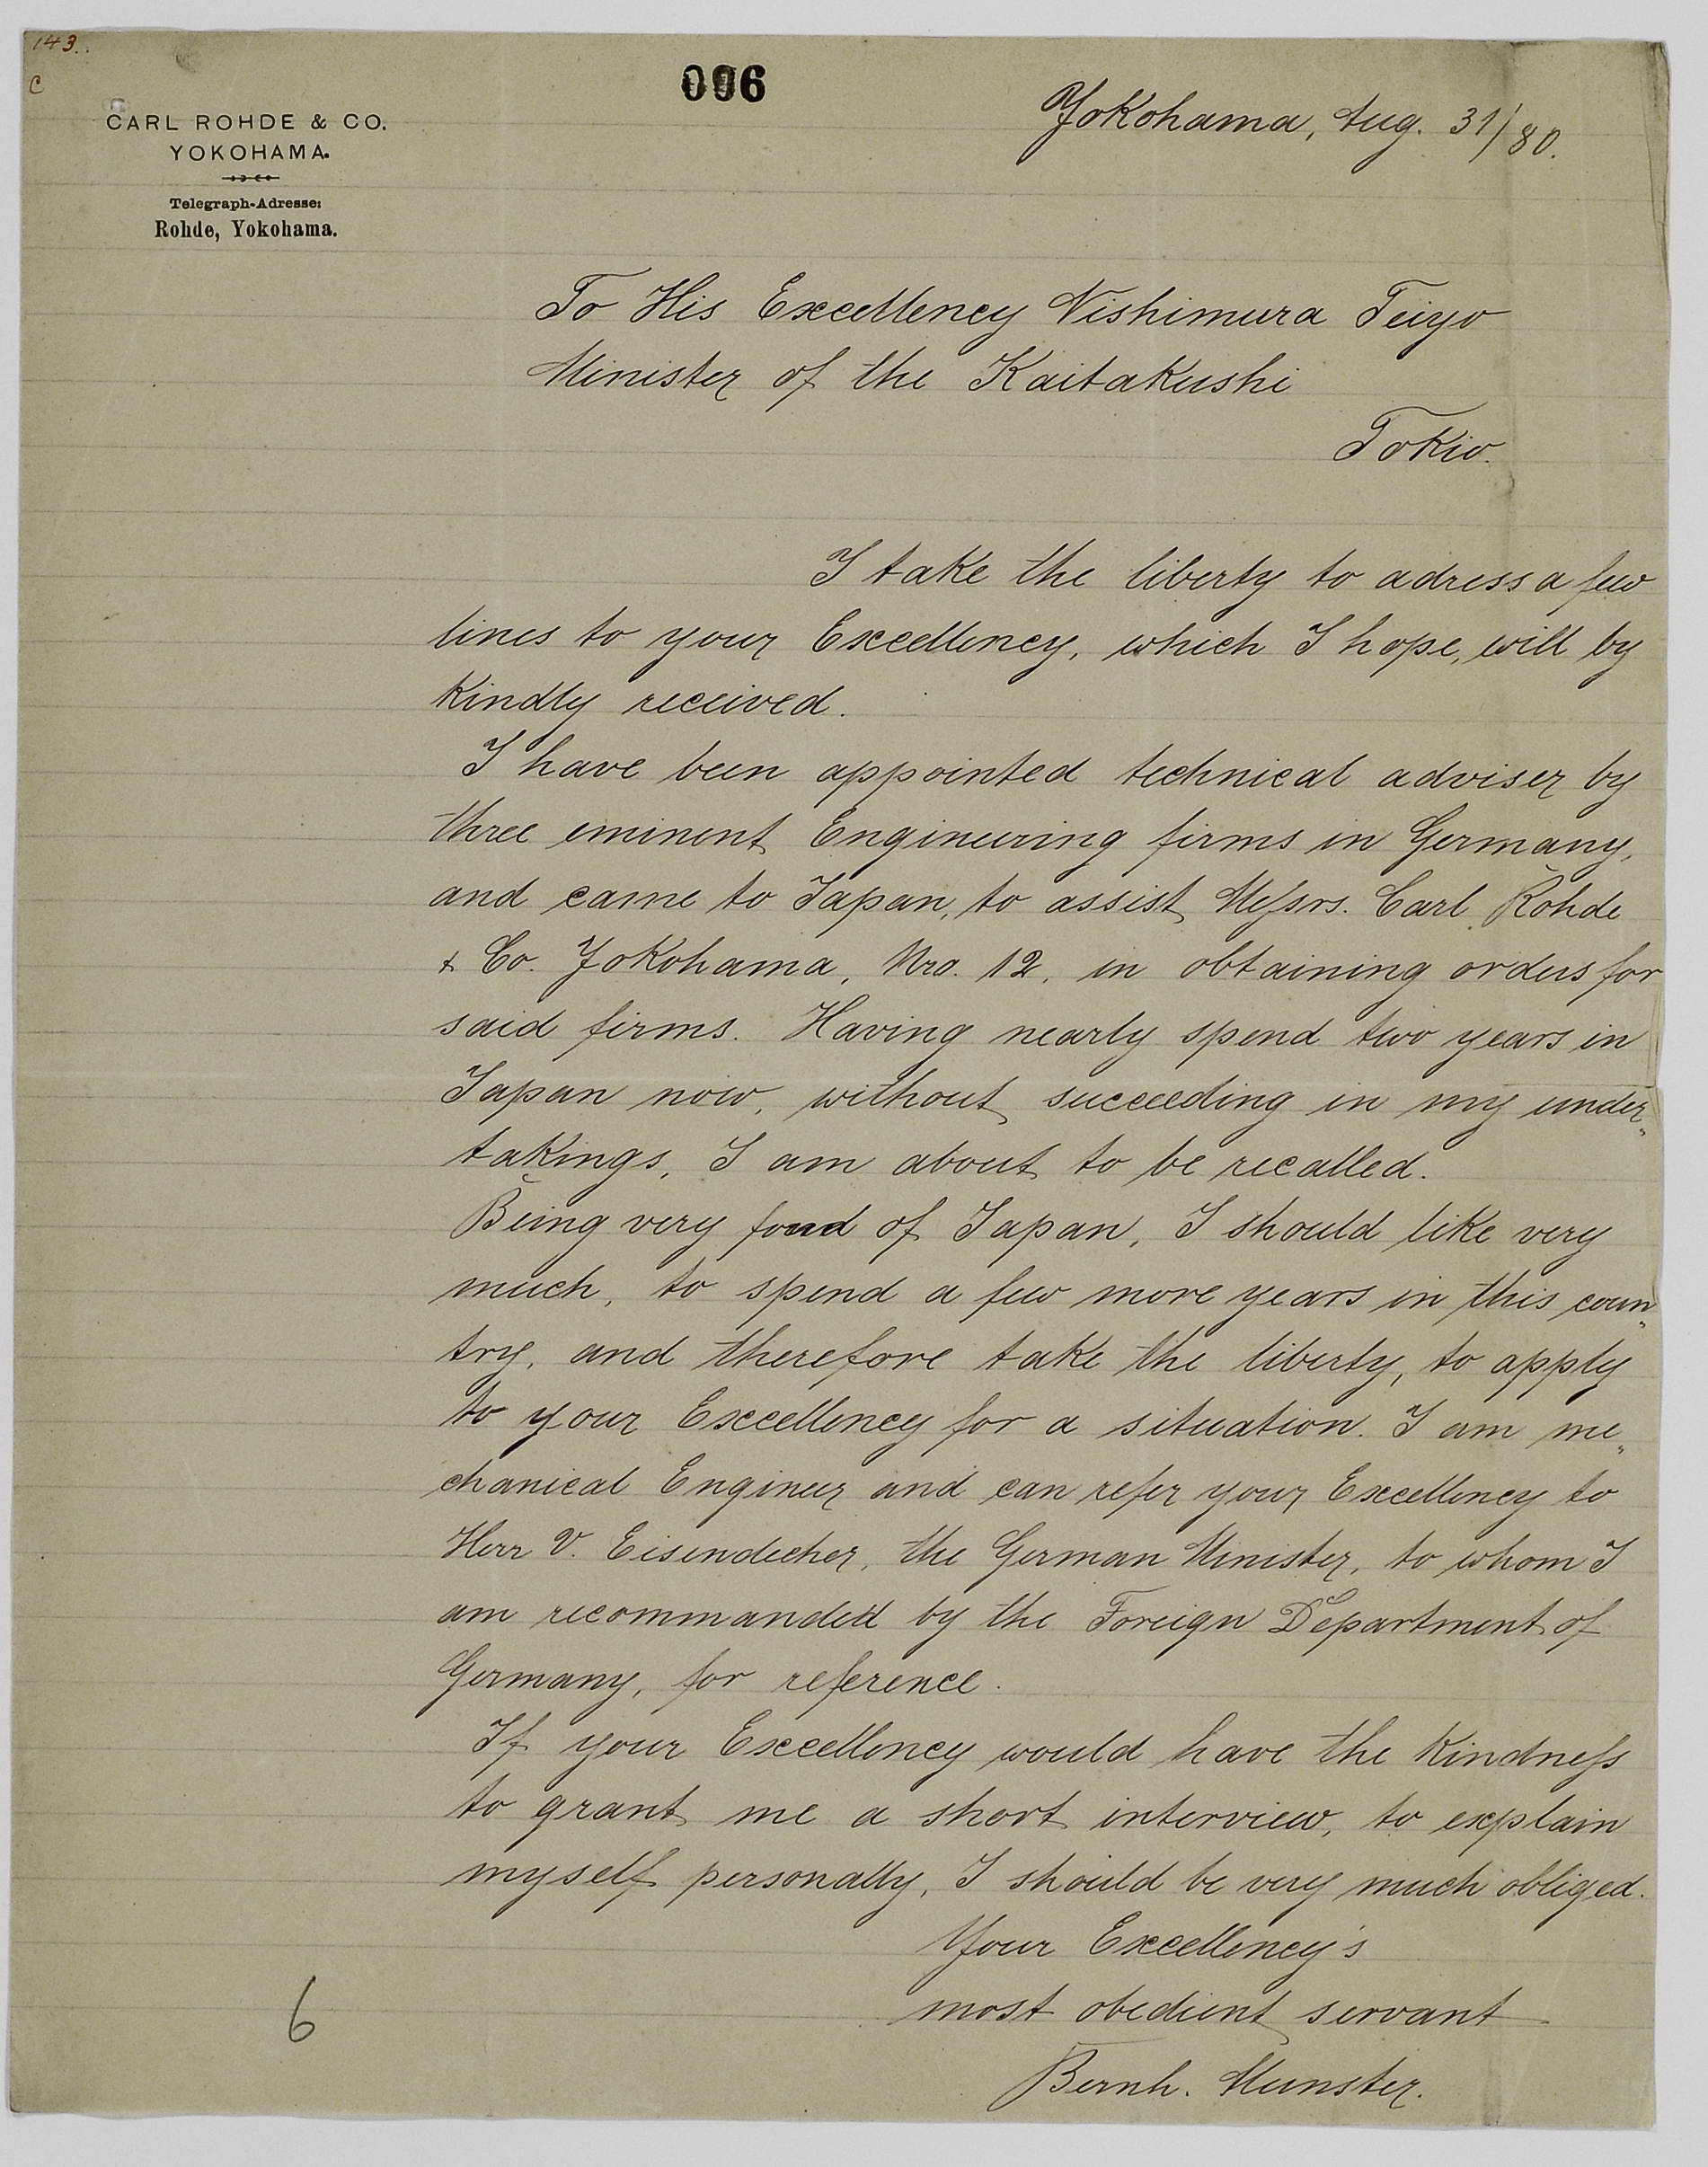 143.
C
096
CARL ROHDE & CO.
YOKOHAMA.
Telegraph-Adresse:
Rohde, Yokohama.
Yokohama, Aug. 31/80.
To His Excellency Nishimura Teiyo
Minister of the Kaitakushi
Tokio.
I take the liberty to adress a few
lines to your Excellency, which I hope, will by
kindly received.
I have been appointed technical adviser by
three eminent Engineering firms in Germany,
and came to Japan, to assist Messrs. Carl Rohde
& Co. Yokohama, Nro. 12, in obtaining orders for
said firms. Having nearly spend two years in
Japan now, without succeeding in my under„
takings, I am about to be recalled.
Being very fond of Japan, I should like very
much, to spend a few more years in this coun„
try, and therefore take the liberty, to apply
to your Excellency for a situation. I am me„
chanical Engineer and can refer your Excellency to
Herr V. Eisendecher, the German Minister, to whom I
am recommanded by the Foreign Department of
Germany, for reference.
If your Excellency would have the kindness
to grant me a short interview, to explain
myself personally, I should be very much obliged.
Your Excellency's
most obedient servant
Bernh. Munster.
6